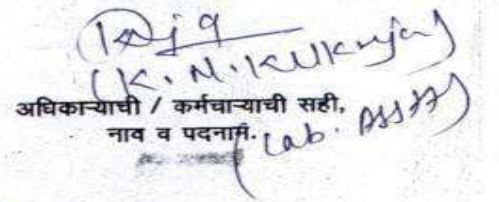 (K. N. Kukreja)
अधिकाऱ्याची / कर्मचाऱ्याची सही,
नाव व पदनाम.
(Lab. Asstt)